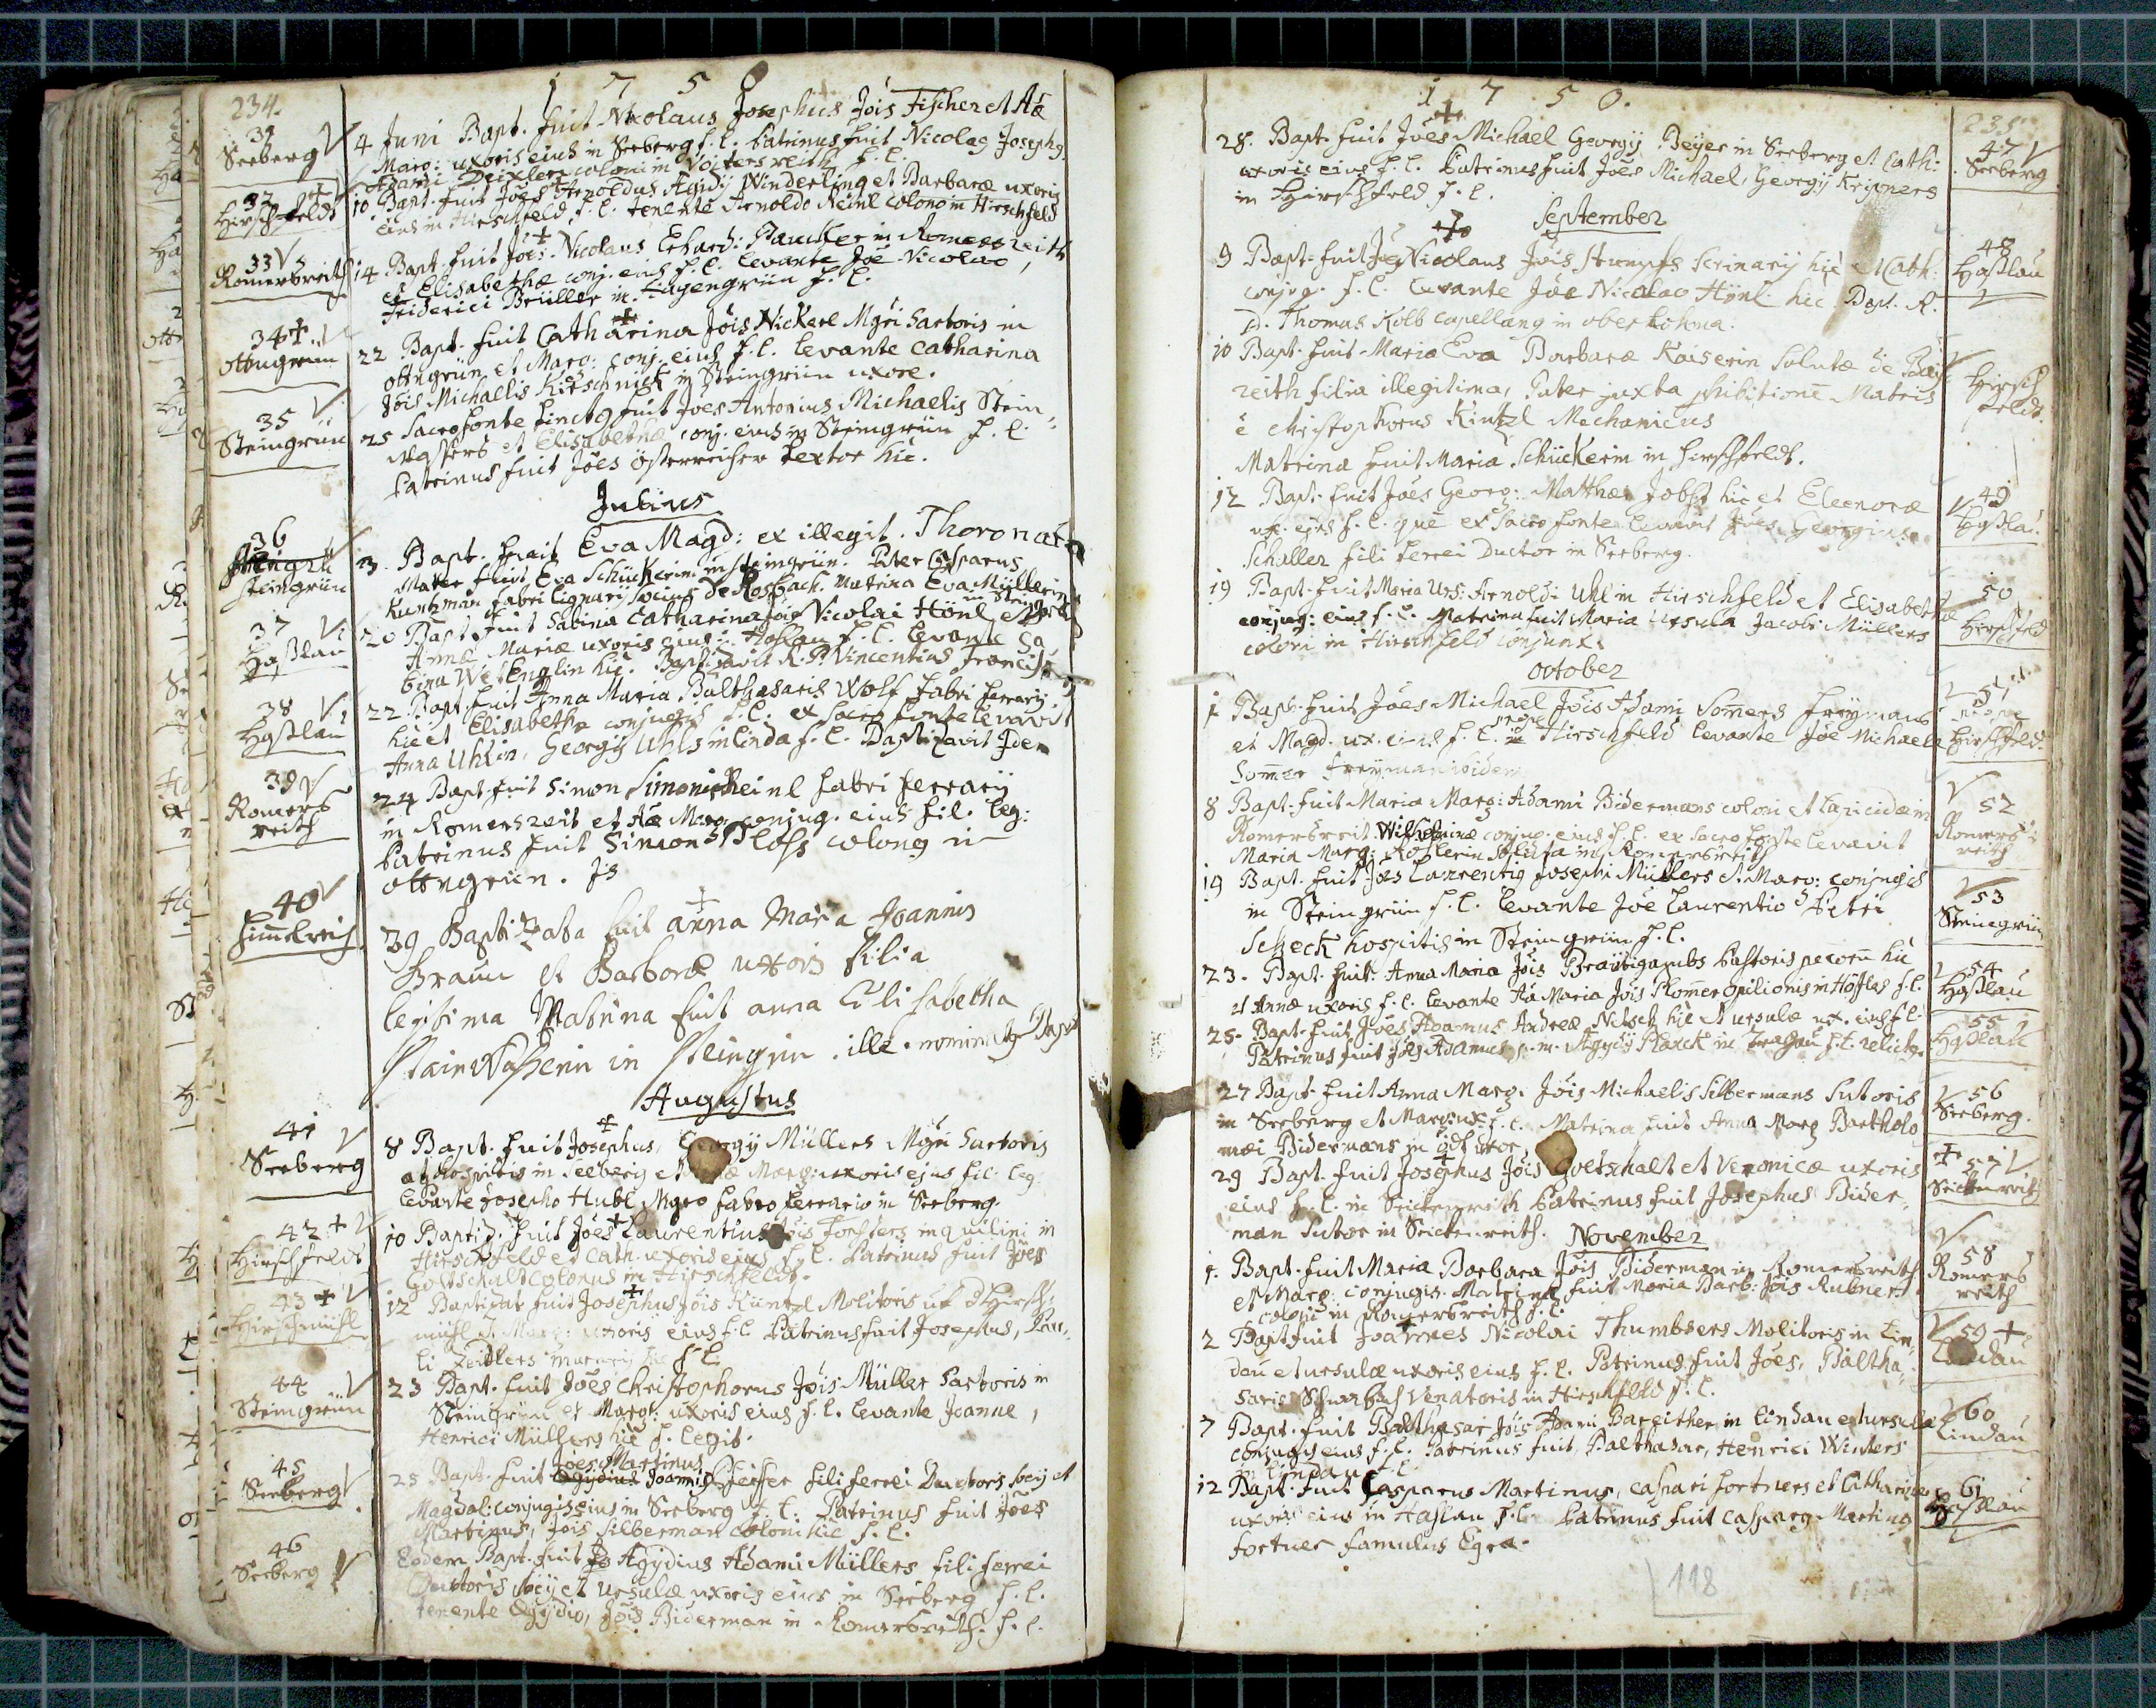 1 7 5 0
234.
31
Seeberg
4 Juni Bapt. fuit Nicolaus Josephus Jois Fischer et Aæ
Marg: uxoris eius in Seeberg f. l. Patrinus fuit Nicolag Josephg
Adami Deixlers coloni in Voitersreith f. l.
32 +
Hirschfeldt
10 Bapt. fuit Joës Arnoldus Agidÿ Winderling et Barbaræ uxoris
eius in Hirschfeld f. l. tenente Arnoldo Reinl colono in Hirschfeld
33
Romersreith
14 Bapt. fuit Joës Nicolaus Erhard: Paucker in Romersreith
et Elisabethæ conj. eius f. l. levante Joë Nicolao,
Friderici Brüller in Hagengrün f. l.
34 +
ottngrün
22 Bapt. fuit Catharina Jois Nickerl Mgri Sartoris in
ottngrün et Marg: conj. eius f. l. levante Catharina
Jöis Michaelis Kirschnick in Steingrün uxore.
35
Steingrün
25 Sacro fonte tinctg fuit Joes Antonius Michaelis Stein,,
wassers et Elisabethæ conj. eius in Steingrün f. l.
Patrinus fuit Joës österreicher textor hic.
Julius
36
Steingrün
13. Bapt. fuit Eva Magd: ex illegit. Thoro nata
Mater fuit Eva Schückerin in Steingrün. Pater Casparus
Kurtzman fabri lignari socius de Rosbach. Matrina Eva Müllerin
in Steingrün
37
Haßlau
20 Bapt. fuit Sabina Catharina Jois Nicolai Hönl et
Annæ Mariæ uxoris eius in Haslau f. l. levante Sa
bina Wetenglin hic. Baptizavit R. P. Vincentius Francis:
38
Haßlau
22 Bapt. fuit Anna Maria Balthasaris Wolf fabri ferrarÿ
hic et Elisabethæ conjugis f. l. ex sacro fonte levavit
Anna Uhlin, Georgÿ Uhls in Linda f. l. Baptizavit Idem
39
Romers
reith
24 Bapt. fuit Simon Simonis Reinl fabri ferrarÿ
in Romersreit et Aæ Marg: conjug. eius fil. leg:
Patrinus fuit Simon Ploß colong in
ottngrün. Js
40
Himmelreich
29 Baptizata fuit anna Maria Joannis
Braun et Barboræ uxoris filia
legitima Matrina fuit anna Elisabetha
Stainwaßerin in Steingrün. ille. nominatg Bapt
Augustus
41
Seeberg
8 Bapt. fuit Josephus, Georgÿ Müllers Mgri Sartoris
et Hospitis in Seeberg et Annæ Marg: uxoris ejus fil. leg
levante Josepho Hubl Mgro fabro ferrario in Seeberg.
42 +
Hirschfeldt
10 Baptiz. fuit Joës Laurentius Jois Forsters inquilini in
Hirschfeld et Cath. uxoris eius f. l. Patrinus fuit Joës
Gottschalt colonus in Hirschfeldt.
43 +
Hirschmühl
12 Baptizat fuit Josephus Jois Küntzl Molitoris
mühl et Marg: uxoris eius f. l. Patrinus fuit Josephus,
Zeidlers murarÿ hic f. l.
44
Steingrün
23 Bapt. fuit Joës Christophorus Jois Müller Sartoris in
Steingrün et Marg: uxoris eius f. l. levante Joanne,
Henrici Müllers hic f. legit.
45
Seeberg
Joes Martinus
25 Bapt. fuit Egydius Joannis Pfeifer fili ferrei Ductoris socÿ et
Magdal: conjugis eius in Seeberg f. l. Patrinus fuit Joës
Martinus, Jois Silberman coloni hic f. l.
46
Seeberg
Eodem Bapt. fuit Agÿdius Adami Müllers fili ferrei
Ductoris socÿ et Ursulæ uxoris eius in Seeberg f. l.
tenente Egÿdio, Jois Biderman in Romersreith. f. l.
1 7 5 0.
235
28. Bapt. fuit Joës Michael Georgÿ Beÿer in Seeberg et Cath:
uxoris eius f. l. Patrinus fuit Joës Michael, Georgÿ Kripners
in Hirschfeld f. l.
47
Seeberg
September
9 Bapt. fuit Joës Nicolaus Jois Stumpfs Scrinarÿ hic et Cath:
conjug. f. l. Levante Joë Nicolao Hÿnl hic Bapt. R.
D. Thomas Kolb Capellang in ober Lohma.
48
Haßlau
10 Bapt. fuit Maria Eva Barbaræ Kaiserin solutæ de
reith filia illegitima, Pater juxta Matris
ẽ Christophorus Kintzl Mechanicus
Matrina fuit Maria Schückerin in hirschfeldt.
Hirsch
feldt.
12 Bapt. fuit Joës Georg: Matthæi Jobst hic et Eleonoræ
ux. eius f. l. quẽ ex sacro fonte levavit Joës Georgius
Schaller fili ferrei Ductor in Seeberg.
49
Haßlau
19 Bapt. fuit Maria Urs: Arnoldi Uhl in Hirschfeld et Elisabethæ
conjug: eius f. l. Matrina fuit Maria Ursula Jacobi Müllers
coloni in Hirschfeld conjunx.
50
Hirschfeld
october
1 Bapt. fuit Joës Michael Jöis Adami Somers freÿmans
et Magd. ux. eius f. l. prope Hirschfeld levante Joë Michaele
Somer freÿman ibidem
51
prope
Hirschfeld.
8 Bapt. fuit Maria Marg: Adami Bidermans coloni et lapicidæ in
Romersreit Wilhelminæ conjug. eius f. l. ex sacro fonte levavit
Maria Marg: Rößlerin soluta in Romersreith
52
Romers
reith
19 Bapt. fuit Joës Laurentig Josephi Müllers et Marg: conjugis
in Steingrün f. l. levante Joë Laurentio Petri
Scheck hospitis in Steingrün f. l.
53
Steingrün
23. Bapt. fuit Anna Maria Jois Bräutigambs Pastoris pecorũ hic
et Annæ uxoris f. l. levante Aã Maria Jois Plomer opilionis in Höflas f. l.
54
Haßlau
25. Bapt. fuit Joës Adamus Andreæ Netsch hic et Ursulæ ux. eius f. l.
Patrinus fuit Joës Adamus p. m. Agÿdÿ Planck in f. l. relictg.
55
Haßlau
27 Bapt. fuit Anna Marg: Jois Michaelis Silbermans Sutoris
in Seeberg et Marg: ux. f. l. Matrina fuit Anna Marg Bartholo
mæi Bidermans in öd uxor
56
Seeberg.
29 Bapt. fuit Josephus Jois Gottschalt et Veronicæ uxoris
eius f. l. in Seichenreith Patrinus fuit Josephus Bider,,
man Sutor in Seichenreith.
+ 57
Seichenreith
November
Bapt. fuit Maria Barbara Jois Biderman in Romersreith
et Marg: conjugis. Matrina fuit Maria Barb: Jois Rubner
coloni in Romersreith f. l.
58
Romers
reith
2 Bapt fuit Joannes Nicolai Thumbsers Molitoris in Lin,,
dau et Ursulæ uxoris eius f. l. Patrinus fuit Joës, Baltha,,
saris Schwabach Venatoris in Hirschfeld f. l.
59 +
Lindau
7 Bapt. fuit Balthasar Jois Adami Bareither in Lindau et Ursulæ
conjugis eius f. l. Patrinus fuit Balthasar, Henrici Winters
in Lindau f. l.
60
Lindau
12 Bapt. fuit Casparus Martinus, Caspari fortners et Catharinæ
uxoris eius in Haslau f. l. Patrinus fuit Casparg Marting
fortner famulus Egræ.
61
Haßlau
118